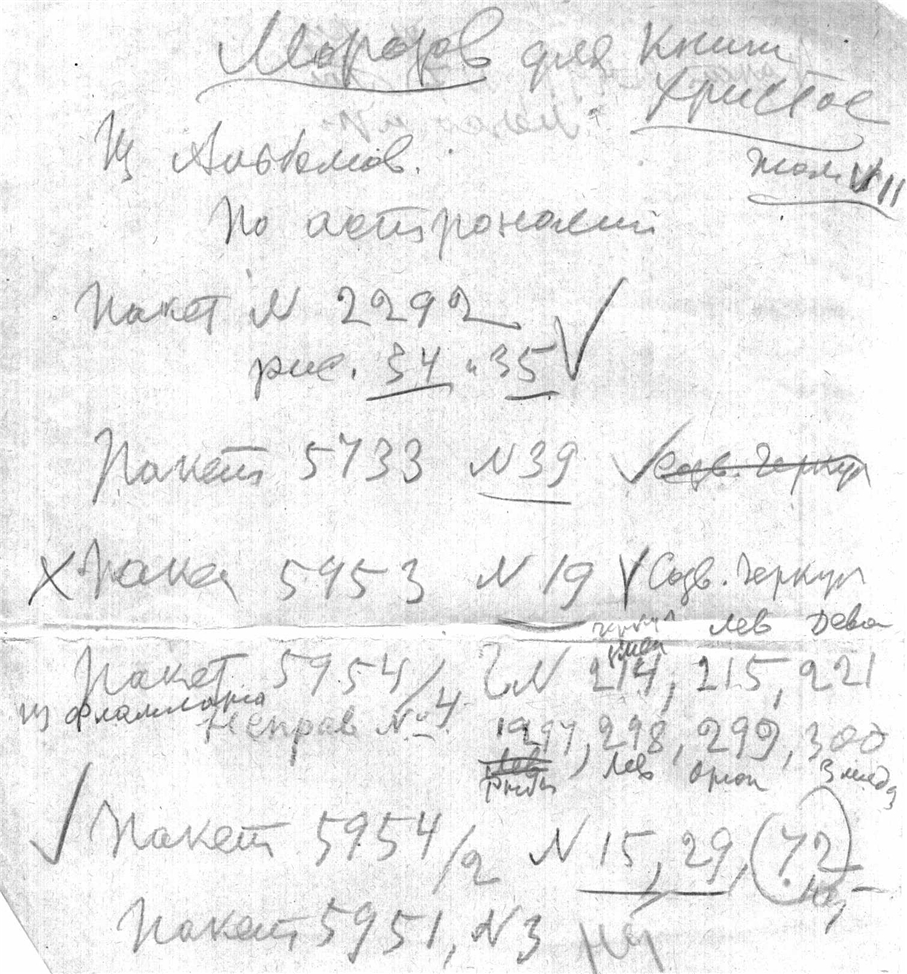 Морозов для книги
Христос
том VII
Из Альбомов.
По астрономии
Пакет N 2292 ✓
рис. 34 и 35
Пакет 5733 N 39 ✓ Созв. Геркул
X Пакет 5953 N 19 ✓ Созв. Геркул
Лев Дева
Пакет 5954/1 N 214, 215, 221
из Фламмариона
Неправ № 4 298, 299, 300
Рыбы Лев Орион
✓ Пакет 5954/2 N 15, 29, 72
нет
Пакет 5951, N 3 нет